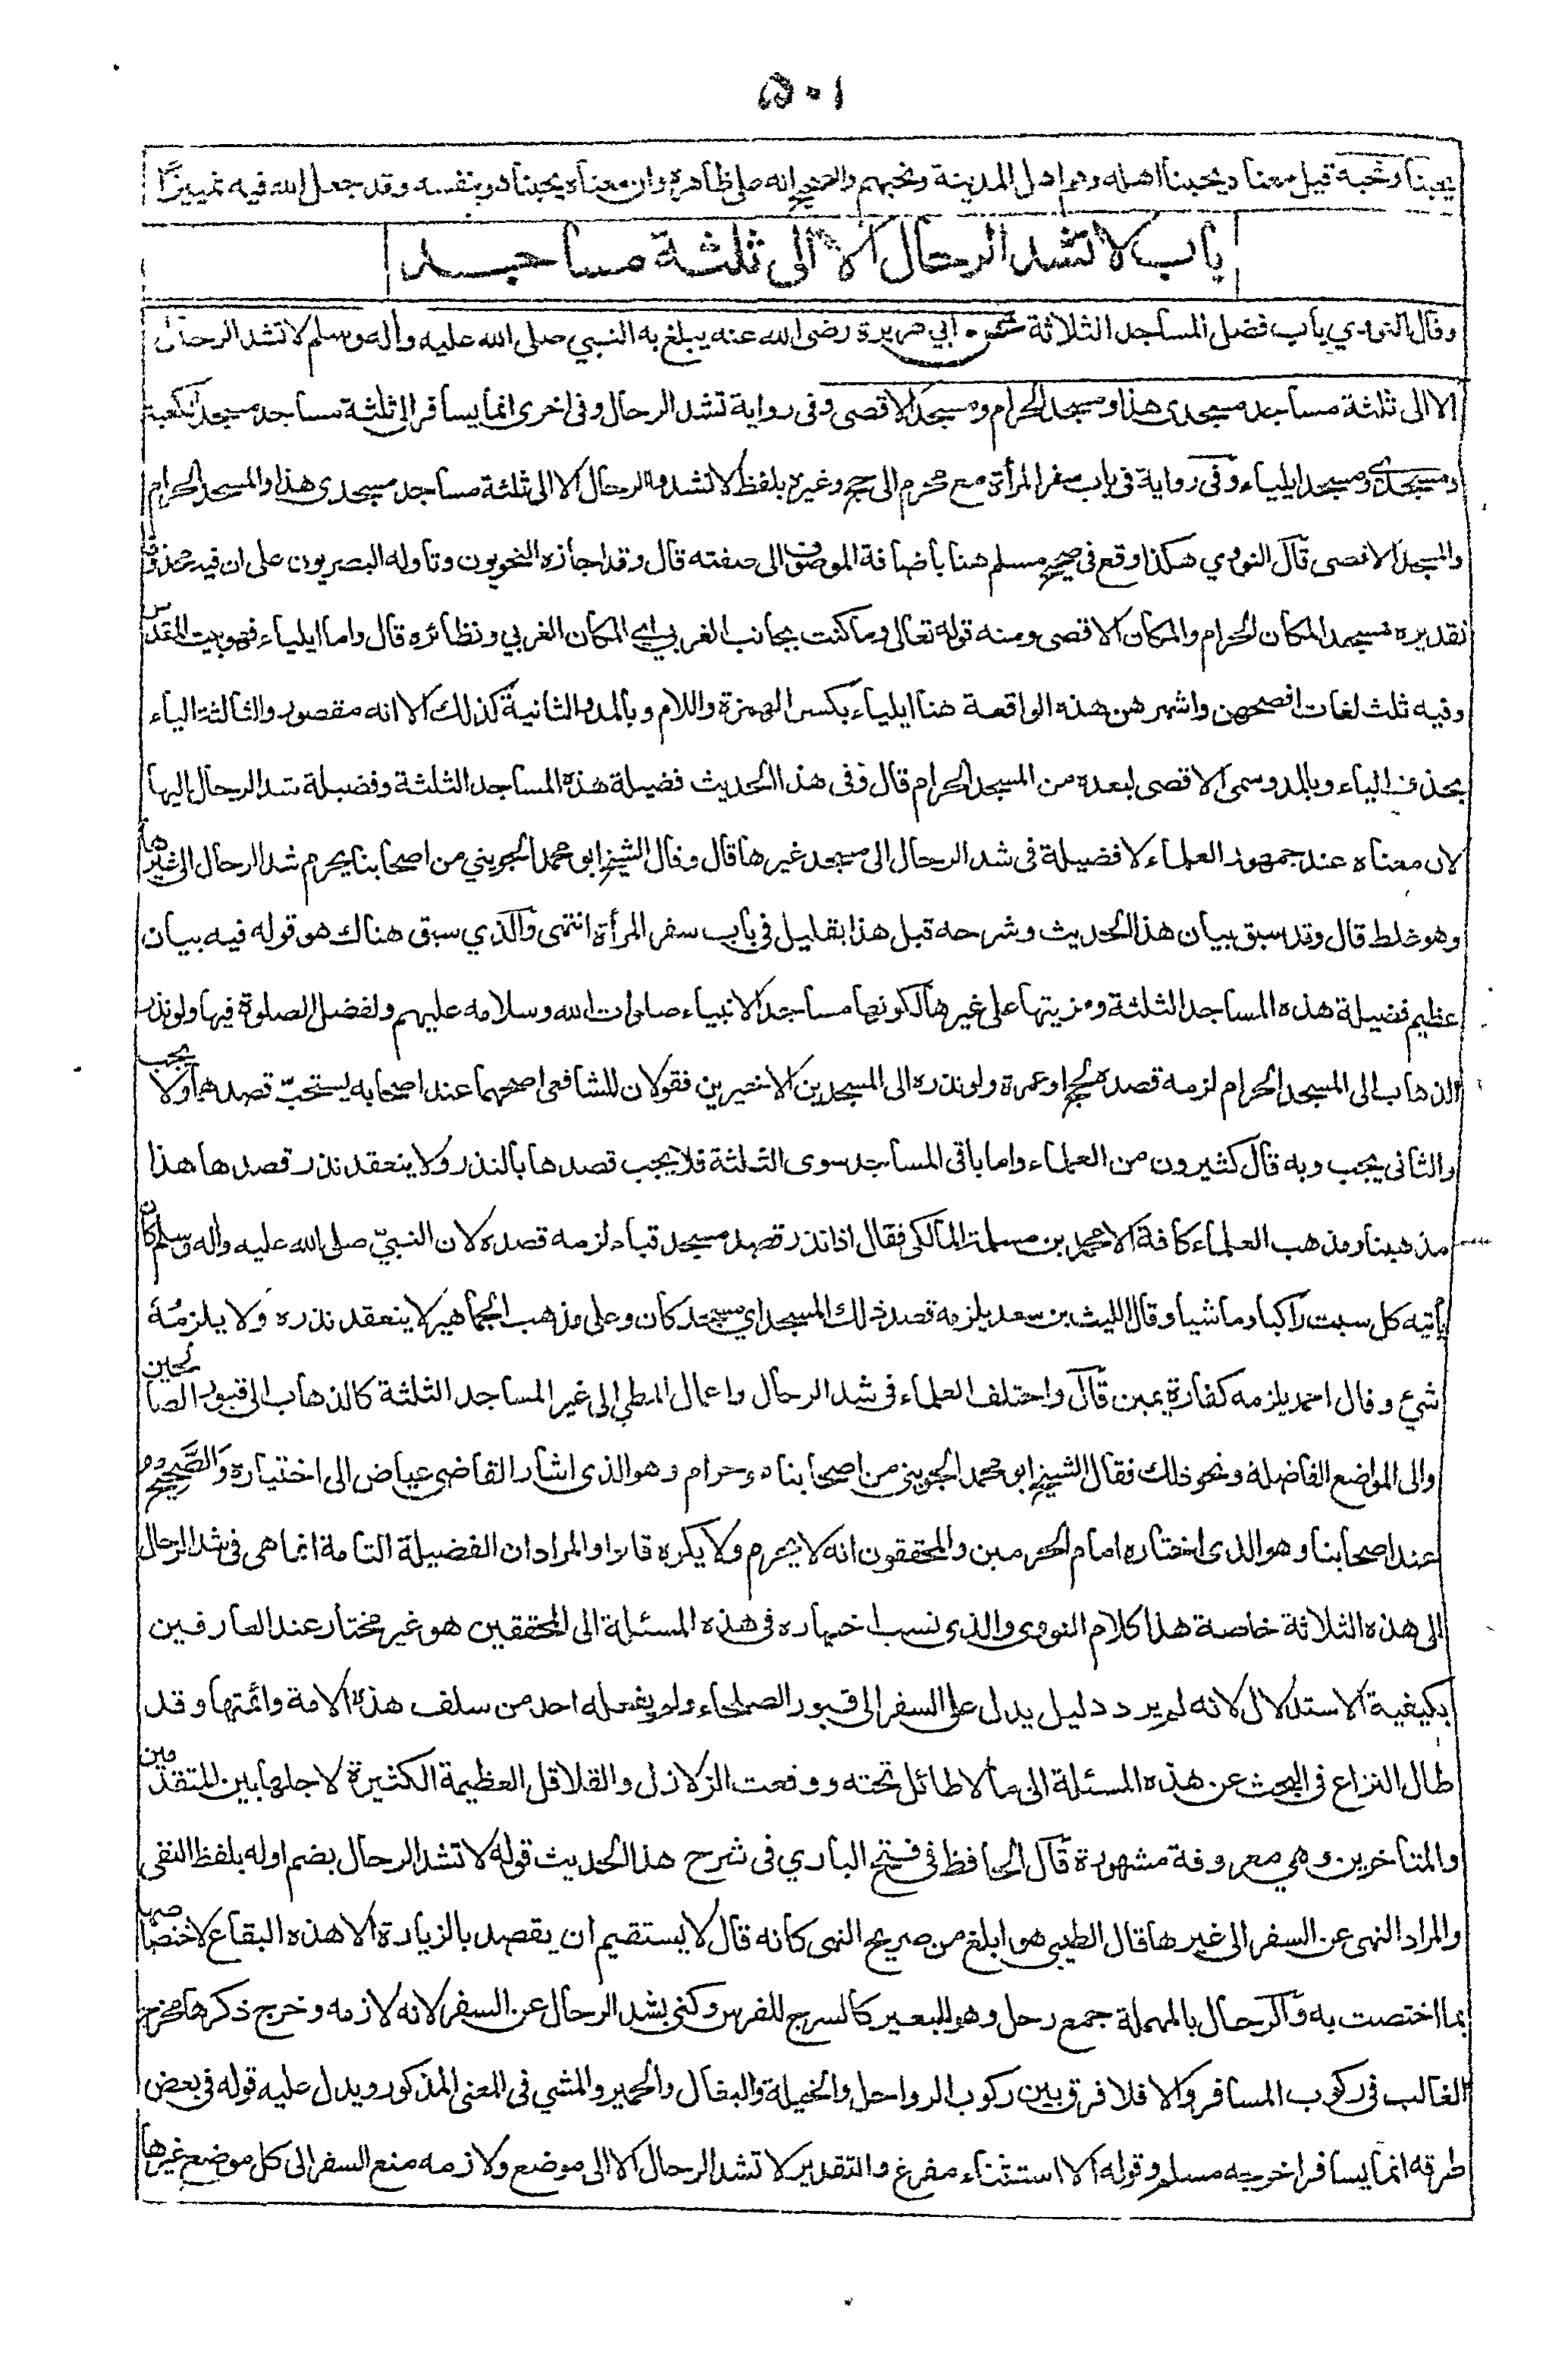 ٥٠١
يحبنا ونحبه قيل معناه يحبنا اهله وهم اهل المدينة ونحبهم والصحيح انه على ظاهره وان معناه يحبنا هو بنفسه وقد جعل الله فيه تمييزًا
باب لا تشد الرحال الا الى ثلثة مساجد
وقال النووي باب فضل المساجد الثلاثة عن ابي هريرة رضى الله عنه يبلغ به النبي صلى الله عليه واٰله وسلم لا تشد الرحال
الا الى ثلثة مساجد مسجدى هذا ومسجد الحرام ومسجد الاقصى وفى رواية تشد الرحال وفى اخرى انما يسافر الى ثلثة مساجد مسجد الكعبة
ومسجدي ومسجد ايلياء وفى رواية فى باب سفر المرأة مع محرم الى حج وغيره بلفظ لا تشدوا الرحال الا الى ثلثة مساجد مسجدى هذا والمسجد الحرام
والمسجد الاقصى قال النووي هكذا وقع فى صحيح مسلم هنا باضافة الموصوف الى صفته قال وقد اجازه النحويون وتاوله البصريون على ان فيه محذوفا
تقديره مسجد المكان الحرام والمكان الاقصى ومنه قوله تعالى وما كنت بجانب الغربي اي المكان الغربي ونظائره قال واما ايلياء فهو بيت المقدس
وفيه ثلث لغات افصحهن واشهرهن هذه الواقعة هنا ايلياء بكسر الهمزة واللام وبالمد والثانية كذلك الا انه مقصور والثالثة الياء
بحذف الياء وبالمد وسمى الاقصى لبعده من المسجد الحرام قال وفى هذا الحديث فضيلة هذه المساجد الثلثة وفضيلة شد الرحال اليها
لان معناه عند جمهور العلماء لا فضيلة فى شد الرحال الى مسجد غيرها قال وقال الشيخ ابو محمد الجويني من اصحابنا يحرم شد الرحال الى غيرها
وهو غلط قال وقد سبق بيان هذا الحديث وشرحه قبل هذا بقليل فى باب سفر المرأة انتهى والذي سبق هناك هو قوله فيه بيان
عظيم فضيلة هذه المساجد الثلثة ومزيتها على غيرها لكونها مساجد الانبياء صلوات الله وسلامه عليهم ولفضل الصلوة فيها ولو نذر
الذهاب الى المسجد الحرام لزمه قصده لحج او عمرة ولو نذره الى المسجدين الاخيرين فقولان للشافعى اصحهما عند اصحابه يستحبّ قصدهما ولا يجب
والثانى يجب وبه قال كثيرون من العلماء واما باقى المساجد سوى الثلثة فلا يجب قصدها بالنذر ولا ينعقد نذر قصدها هذا
مذهبنا ومذهب العلماء كافة الا محمد بن مسلمة المالكى فقال اذا نذر قصد مسجد قباء لزمه قصده لان النبيّ صلى الله عليه واٰله وسلم كان
يأتيه كل سبت راكبا وماشيا وقال الليث بن سعد يلزمه قصد ذلك المسجد اي مسجد كان وعلى مذهب الجماهير لا ينعقد نذره ولا يلزمه
شيء وقال احمد يلزمه كفارة يمين قال واختلف العلماء فى شد الرحال واعمال المطي الى غير المساجد الثلثة كالذهاب الى قبور الصالحين
والى المواضع الفاضلة ونحو ذلك فقال الشيخ ابو محمد الجوينى من اصحابنا هو حرام وهو الذى اشار القاضى عياض الى اختياره والصَّحيح
عند اصحابنا وهو الذى اختاره امام الحرمين والمحققون انه لا يحرم ولا يكره قالوا والمراد ان الفضيلة التامة انما هى فى شد الرحال
الى هذه الثلاثة خاصة هذا كلام النووى والذى نسب اختياره فى هذه المسئلة الى المحققين هو غير مختار عند العارفين
بكيفية الاستدلال لانه لم يرد دليل يدل على السفر الى قبور الصلحاء ولم يفعله احد من سلف هذه الامة وائمتها وقد
طال النزاع فى البحث عن هذه المسئلة الى ما لا طائل تحته ووقعت الزلازل والقلاقل العظيمة الكثيرة لاجلها بين المتقدمين
والمتأخرين وهي معروفة مشهورة قال الحافظ فى فتح الباري فى شرح هذا الحديث قوله لا تشد الرحال بضم اوله بلفظ النفى
والمراد النهى عن السفر الى غيرها قال الطيبى هو ابلغ من صريح النهى كانه قال لا يستقيم ان يقصد بالزيارة الا هذه البقاع لاختصاصها
بما اختصت به والرحال بالمهملة جمع رحل وهو للبعير كالسرج للفرس وكنى بشد الرحال عن السفر لانه لازمه وخرج ذكرها مخرج
الغالب فى ركوب المسافر والا فلا فرق بين ركوب الرواحل والخيلة والبغال والحمير والمشي فى المعنى المذكور ويدل عليه قوله فى بعض
طرقه انما يسافر اخرجه مسلم وقوله الا استثناء مفرغ والتقدير لا تشد الرحال الا الى موضع ولازمه منع السفر الى كل موضع غيرها